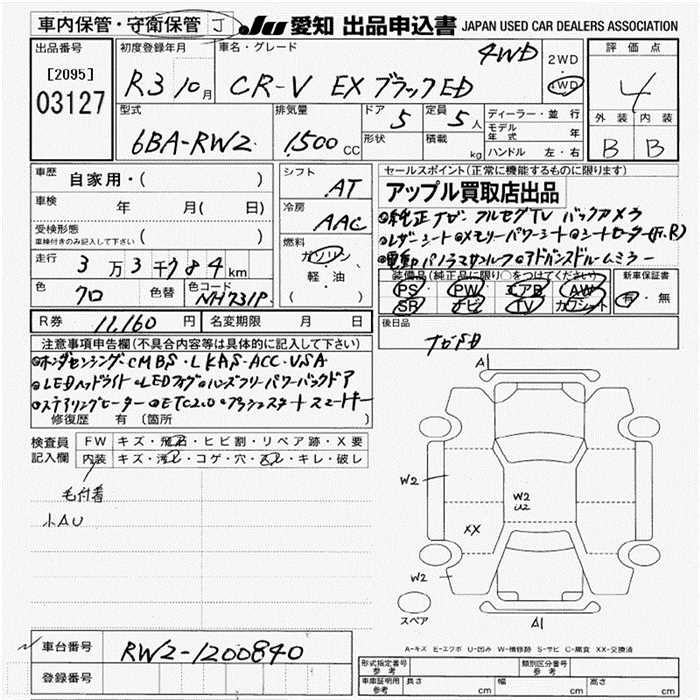 車内保管・守衛保管 J JU 愛知 出品申込書 JAPAN USED CAR DEALERS ASSOCIATION
出品番号 [2095] 03127
初度登録年月 R3 10月
車名・グレード CR-V EX ブラックED 4WD
2WD 4WD
評価点 4
型式 6BA-RW2
排気量 1,500 CC
ドア 5 定員 5人
形状 積載 kg
ディーラー・並行
モデル年式 年
ハンドル 左・右
外装 内装
B B
車歴 自家用・( )
シフト AT
セールスポイント(正常に機能するものに限ります)
アップル買取店出品
車検 年 月( 日)
冷房 AAC
●純正ナビ フルセグTV バックカメラ
受検形態 車検付きのみ記入して下さい ( )
●レザーシート ●メモリーパワーシート ●シートヒーター(F.R)
燃料 ガソリン・軽・油、
●電動パノラマサンルーフ ●アドバンスドルームミラー
走行 3万3千784km
装備品(純正品に限り○をつけてください) 新車保証書
PS PW エアB AW 有・無
SR ナビ TV カワシート
色 クロ 色替 色コード NH731P
後日品 ナビSD
R券 11,160円 名変期限 月 日
注意事項申告欄(不具合内容等は具体的に記入して下さい)
●ホンダセンシング CMBS・LKAS・ACC・VSA
●LEDヘッドライト ●LEDフォグ ●ハンズフリーパワーバックドア
●ステアリングヒーター ●ETC2.0 ●プッシュスタート スマートキー
修復歴 有 [箇所 ]
検査員記入欄 FW キズ・飛石・ヒビ割・リペア跡・X要
内装 キズ・汚レ・コゲ・穴・スレ・キレ・破レ
毛付着
小AU
A1
W2
W2
U2
XX
W2
スペア
A1
A-キズ E-エクボ U-凹み W-補修跡 S-サビ C-腐食 XX-交換済
車台番号 RW2-1200840
登録番号
形式指定番号 参考 類別区分番号 参考
車庫証明用 参考 長さ cm 幅 cm 高さ cm